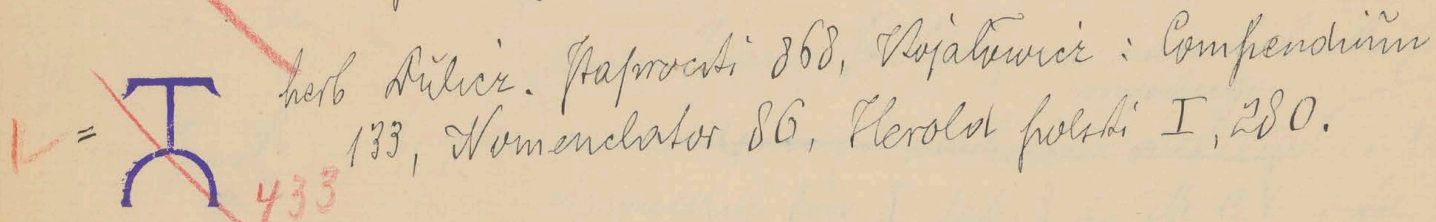 herb Dŭlicz. Paprocki 868, Kojałowicz : Compendiŭm
= 133, Nomenclator 86, Herold polski I, 280.
433